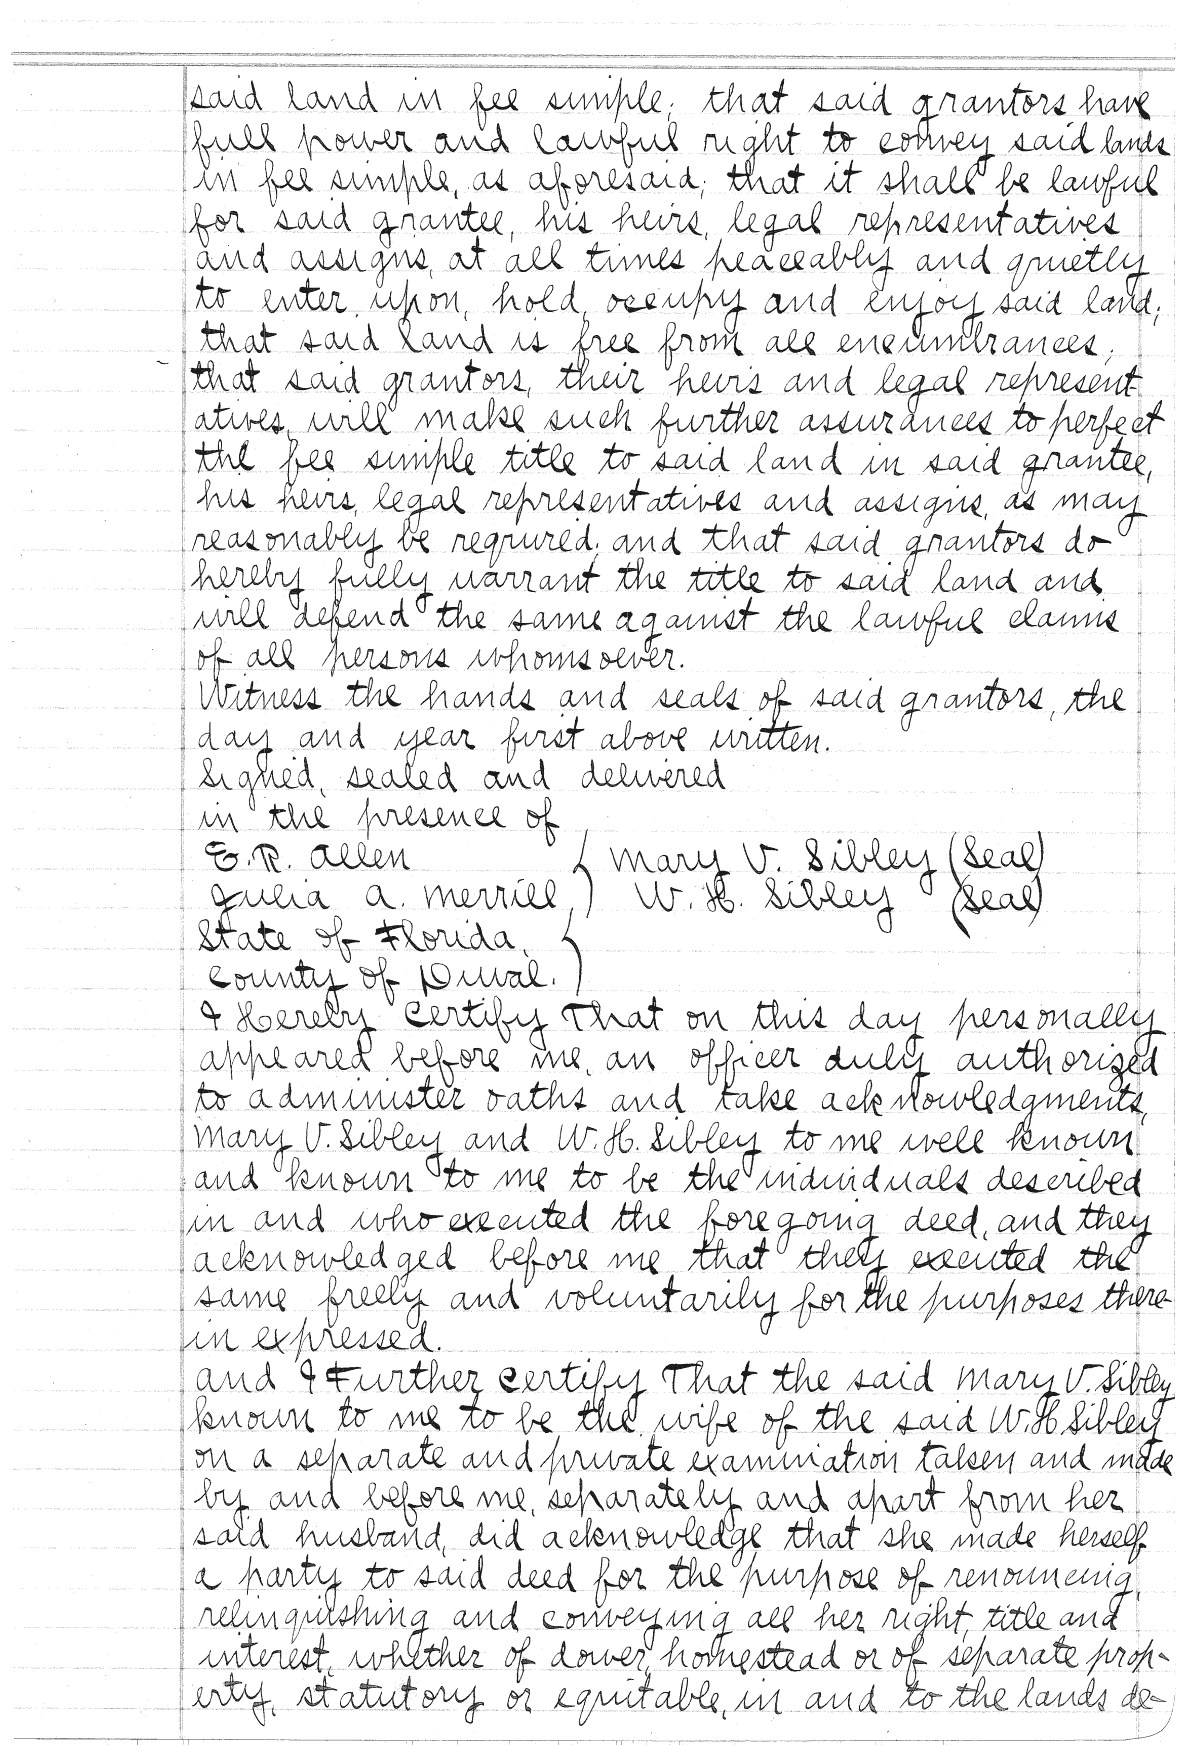 said land in fee simple; that said grantors have
full power and lawful right to convey said lands
in fee simple, as aforesaid; that it shall be lawful
for said grantee, his heirs, legal representatives
and assigns, at all times peaceably and quietly
to enter upon, hold, occupy and enjoy said land;
that said land is free from all encumbrances;
that said grantors, their heirs and legal represent
atives, will make such further assurances to perfect
the fee simple title to said land in said grantee,
his heirs, legal representatives and assigns, as may
reasonably be required; and that said grantors do
hereby fully warrant the title to said land and
will defend the same against the lawful claims
of all persons whomsoever.
Witness the hands and seals of said grantors, the
day and year first above written.
Signed, sealed and delivered
in the presence of
E. R. Allen } Mary V. Sibley (Seal)
Julia A. Merrill, } W. H. Sibley (Seal)
State of Florida, }
County of Duval. }
I Hereby Certify That on this day personally
appeared before me, an officer duly authorized
to administer oaths and take acknowledgments,
Mary V. Sibley and W. H. Sibley to me well known
and known to me to be the individuals described
in and who executed the foregoing deed, and they
acknowledged before me that they executed the
same freely and voluntarily for the purposes there-
in expressed.
And I Further Certify That the said Mary V. Sibley
known to me to be the wife of the said W. H Sibley
on a separate and private examination taken and made
by and before me, separately and apart from her
said husband, did acknowledge that she made herself
a party to said deed for the purpose of renouncing,
relinquishing and conveying all her right, title and
interest, whether of dower, homestead or of separate prop-
erty, statutory or equitable, in and to the lands de-